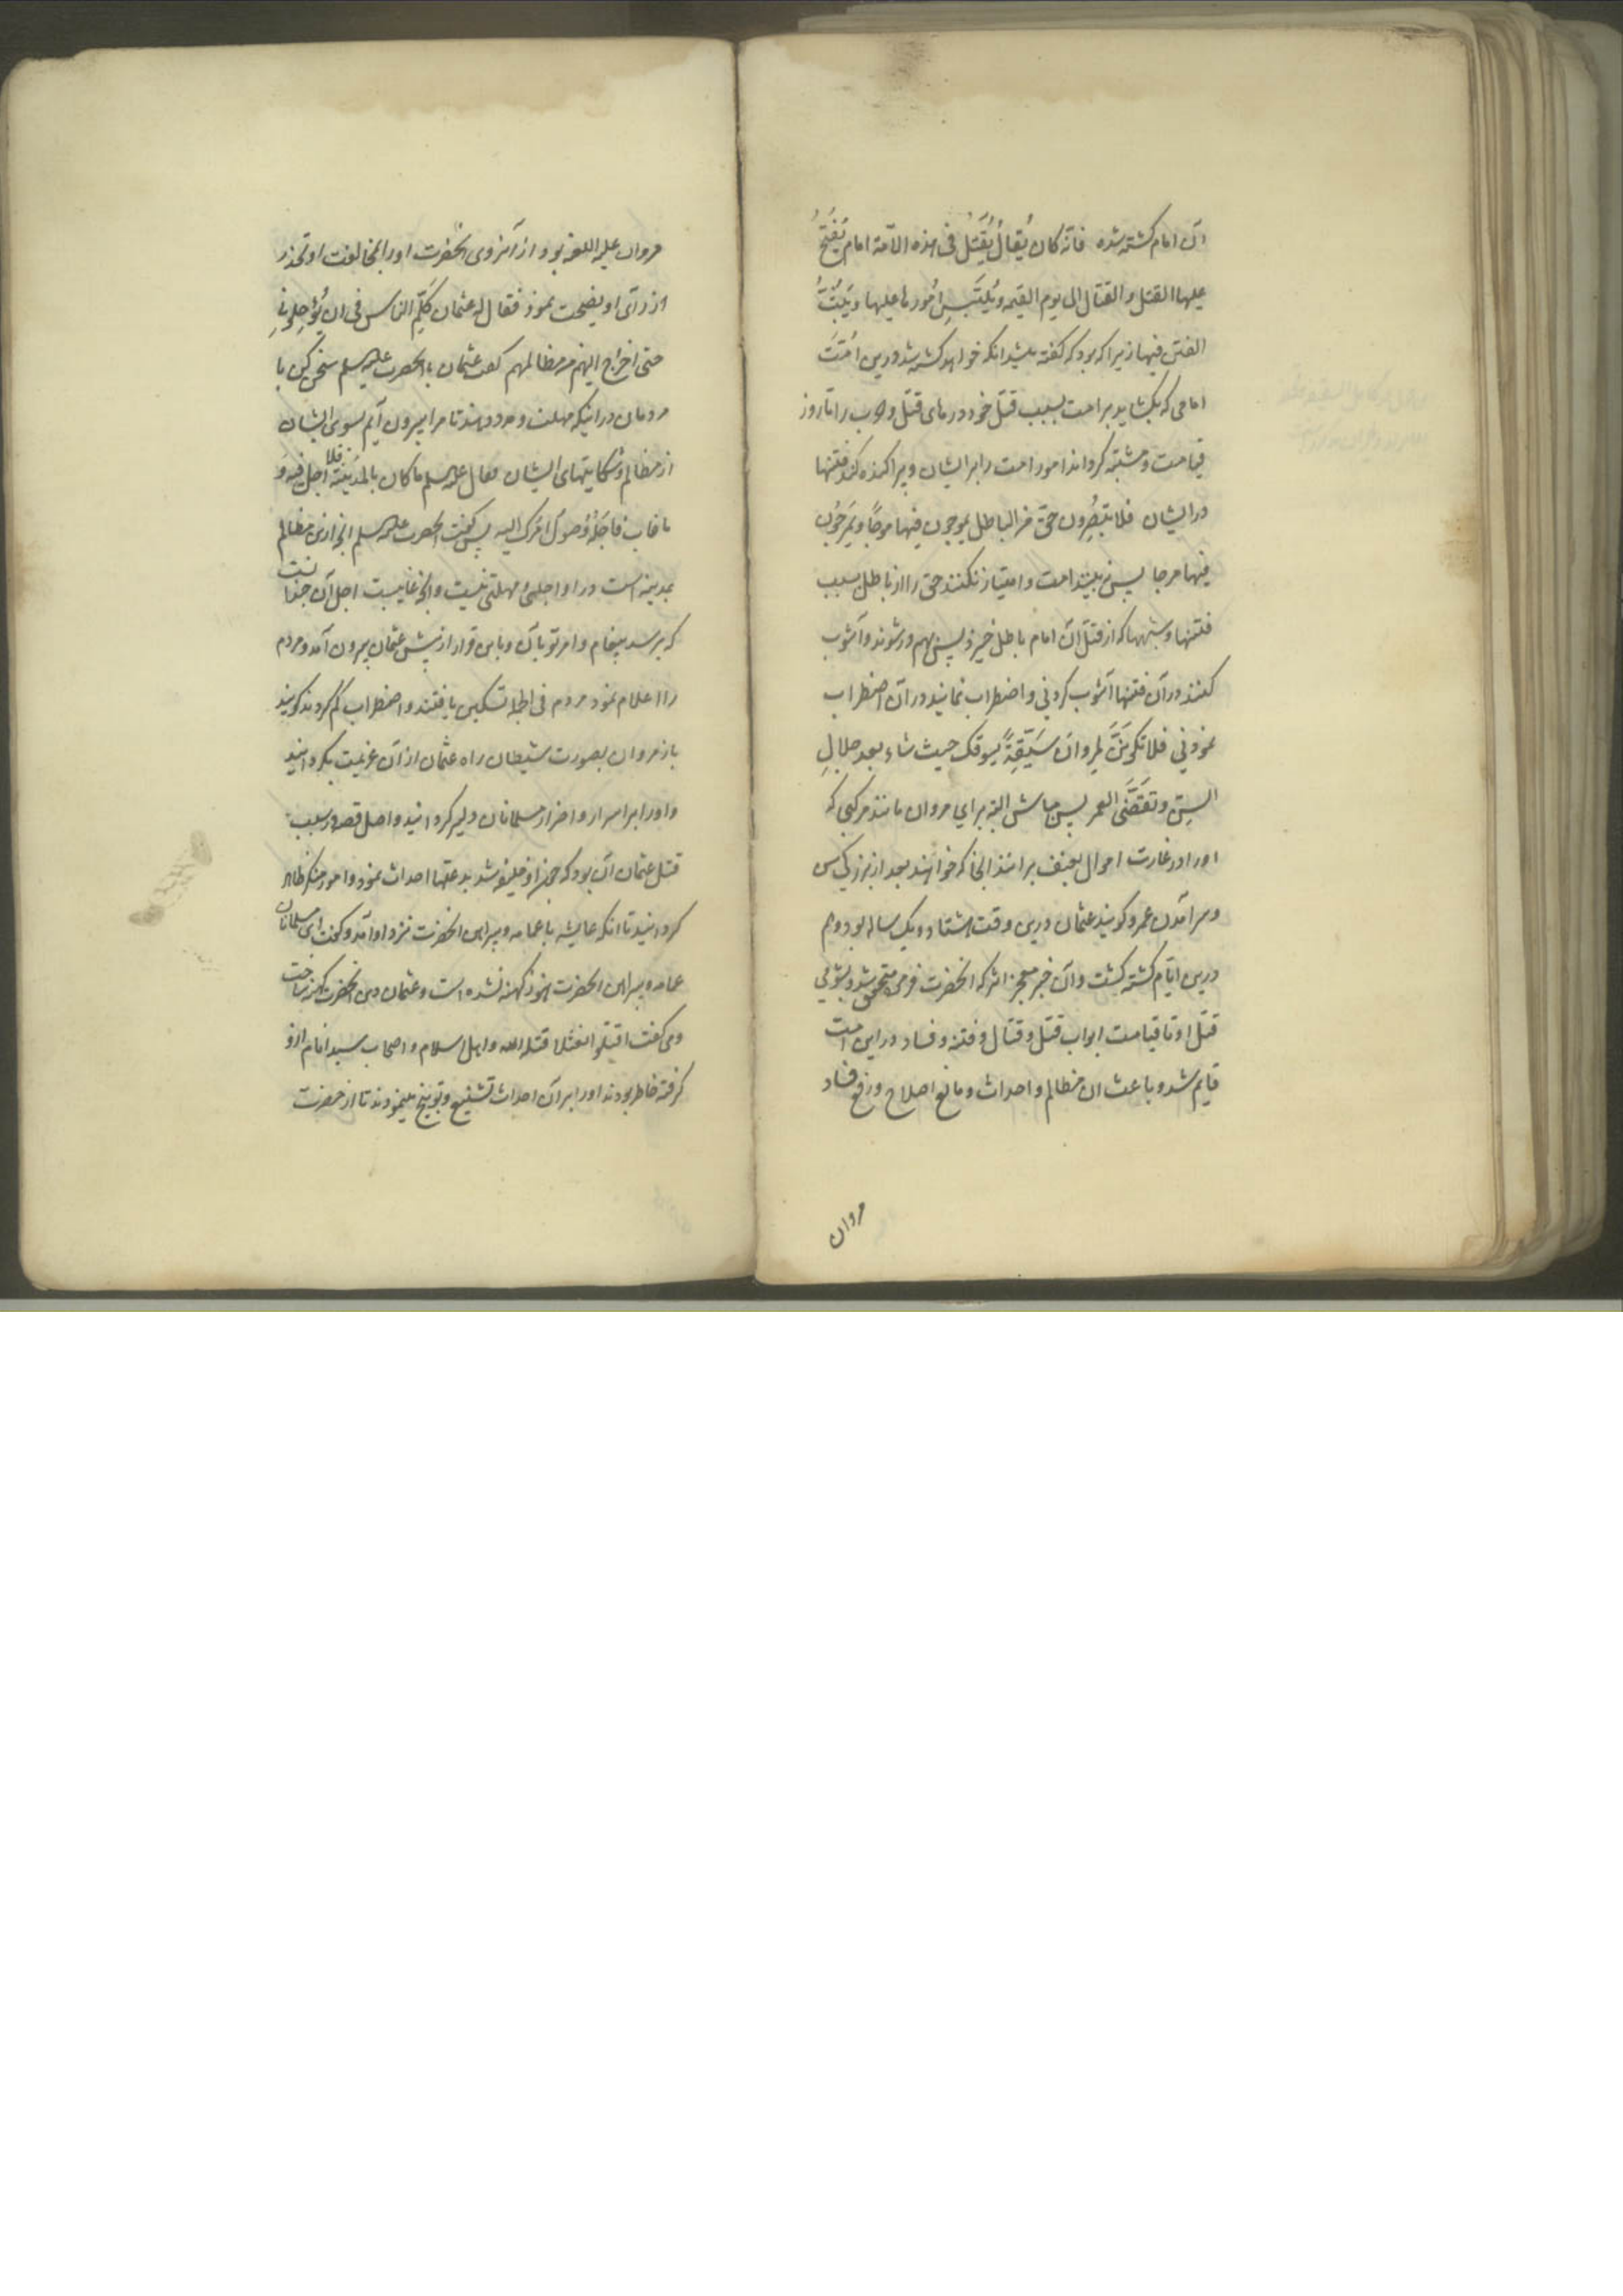 آن امام کشته شده فانّه کان یُقالُ یُقتَلُ فی هذه الاّمة امام یَفتَحُ
علیها القتل و القتال الی یوم القیمه و یُلبّسُ اُمورها علیها و یَبُثُّ
الفتن فیها زیرا که بود که گفته میشد انکه خواهد کشته شد درین امّت
امامی که بکشاید بر امت بسبب قتل خود درهای قتل و حرب را تا روز
قیامت و مشتبه گرداند امور امت را بر ایشان و پراکنده کند فتنها
در ایشان فلا یُبصِرُون حقّ من الباطل یموجون فیها موجًا و یَمرَجُون
فیها مرجا پس نه بینند امت و امتیاز نکنند حق را از باطل بسبب
فتنها و شبهها که از قتل آن امام باطل خیزد پس بهم در شوند و آشوب
کنند در آن فتنها آشوب کردنی و اضطراب نمایند در آن اضطراب
نمودنی فلا تکونَنَّ لمروانَ سَیّقِةً یسوقک حیث شاء بعد جلالِ
السِنّ و تَقَضَّی العمر پس مباش البته برای مروان مانند مرکبی که
او را در غارت اموال بعنف برانند انجا که خواهند بعد از بزرگی سن
و سر آمدن عمر و گویند عثمان درین وقت هشتاد و یک ساله بود و هم
درین ایّام کشته گشت و آن خبر معجز اثر که انحضرت فرمود متحقق شد و بشومی
قتل او تا قیامت ابواب قتل و قتال و فتنه و فساد در این امت
قایم شد و باعث ان مظالم و احداث و مانع اصلاح و رفع فساد
مروان
مروان علیه اللعنه بود از آنروی انحضرت او را بمخالفت او و تحذیر
از رآی او نصیحت نمود فقال له عثمان کَلّمِ الناس فی ان یُؤَجِلونِی
حتی اخراج الیهم من مظالمهم گفت عثمان با انحضرت علیه السلم سخن کن با
مردمان در اینکه مهلت دهند تا من بیرون آیم بسوی ایشان
از مظالم و شکایتهای ایشان فقال علیه السلم ما کان بالمدینة فلا اجل فیه و
ما غاب فاجَلُهُ وُصولُ امرک الیه پس گفت انحضرت علیه السلم انچه ازین مظالم
بمدینه است در او اجلی و مهلتی نیست و انچه غایبست اجل آن چندانست
که برسد پیغام و امر تو بآن و باین قرار از پیش عثمان بیرون آمد و مردم
را اعلام نمود مردم فی الجمله تسکین یافتند و اضطراب کم کردند گویند
باز مروان بصورت شیطان راه عثمان از آن عزیمت بگردانید
و او را بر اسرار و اضرار مسلمانان دلیر گردانید و اصل قصه و سبب
قتل عثمان آن بود که چون او خلیفه شد بدعتها احداث نمود و امور منکر ظاهر
گردانید تا انکه عایشه با عمامه و پیراهن انحضرت نزد او آمد و گفت ای مسلمانان
عمامه و پیراهن انحضرت هنوز کهنه نشده است و عثمان دین انحضرت کهنه ساخت
و می گفت اقتلوا نعثلا قتله الله و اهل اسلام و اصحاب سید انام ازو
گرفته خاطر بودند او را بر آن احداث تشنیع و توبیخ مینمودند تا از حضرت